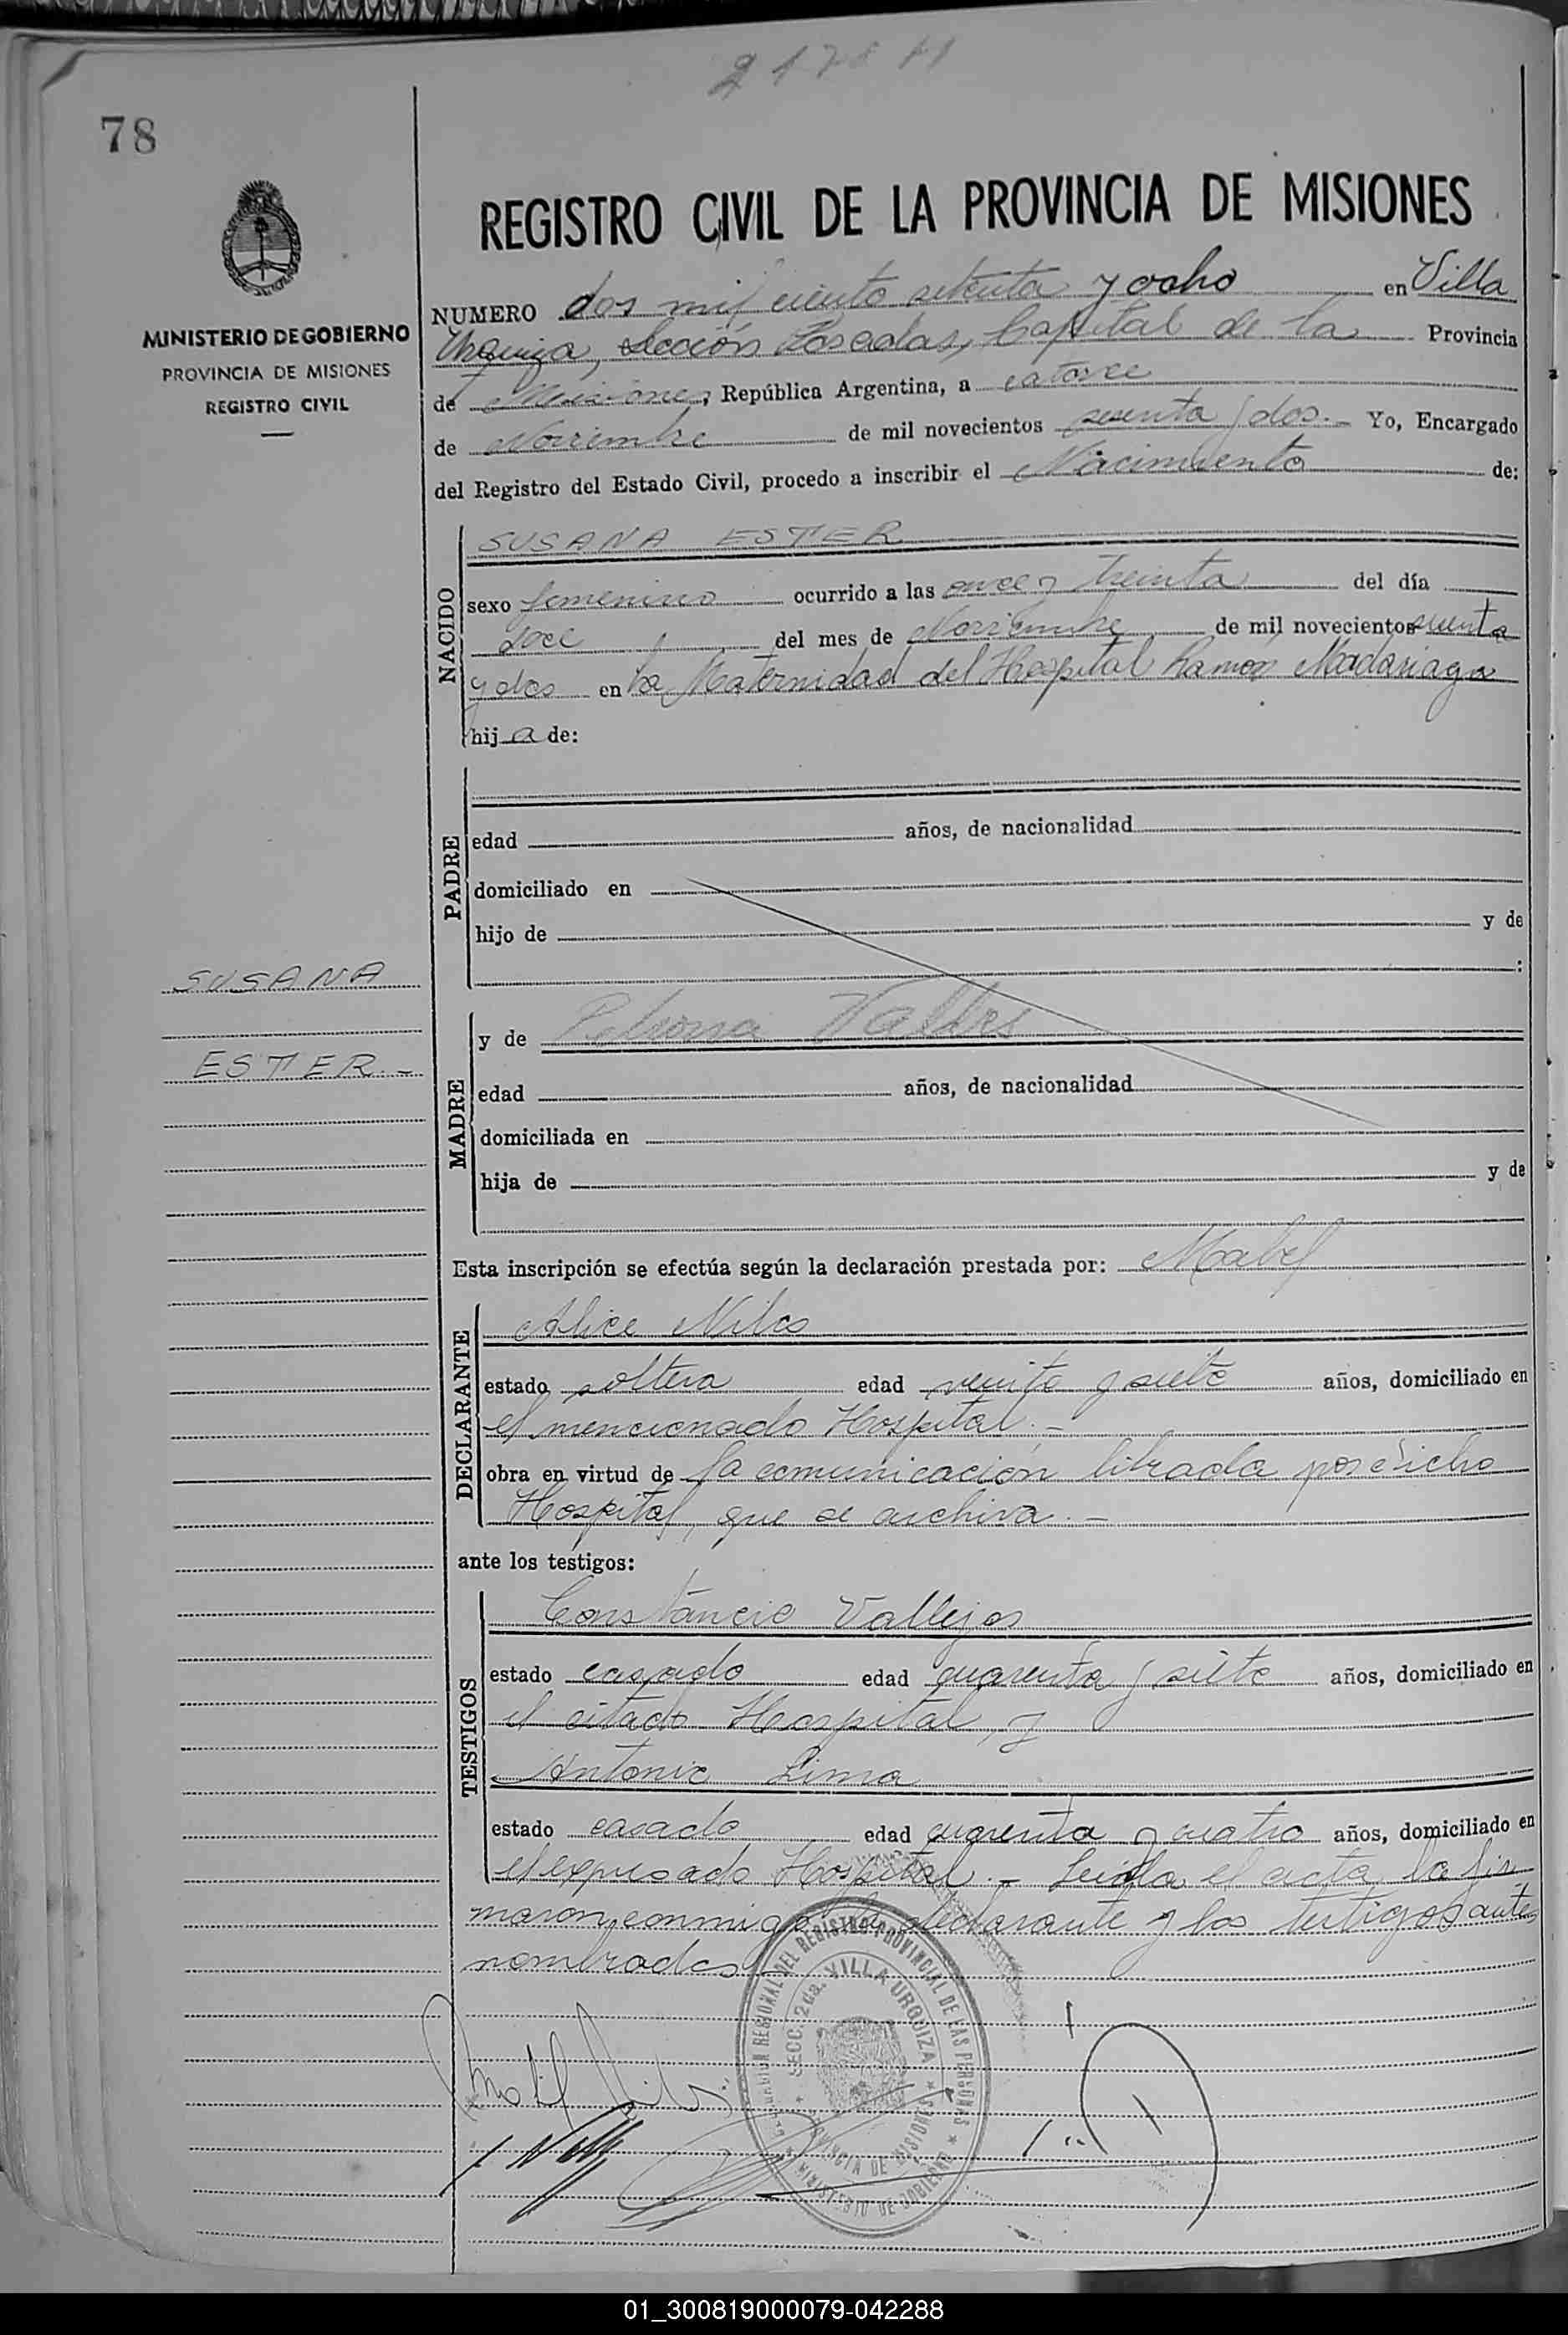 2178 H
78
REGISTRO CIVIL DE LA PROVINCIA DE MISIONES
MINISTERIO DE GOBIERNO
PROVINCIA DE MISIONES
REGISTRO CIVIL
NUMERO dos mil ciento setenta y ocho en Villa
Urquiza, Sección Posadas, Capital de la Provincia
de Misiones, República Argentina, a catorce
de Noviembre de mil novecientos sesenta y dos.- Yo, Encargado
del Registro del Estado Civil, procedo a inscribir el Nacimiento de:
NACIDO
SUSANA ESTER
sexo femenino ocurrido a las once y treinta del día
doce del mes de Noviembre de mil novecientos sesenta
y dos en la Maternidad del Hospital Ramon Madariaga
hija de:
PADRE
edad años, de nacionalidad
domiciliado en
hijo de y de
:
SUSANA
ESTER.-
MADRE
y de
edad años, de nacionalidad
domiciliada en
hija de y de
Esta inscripción se efectúa según la declaración prestada por: Mabel
DECLARANTE
Alice Nilos
estado soltera edad veinte y siete años, domiciliado en
el mencionado Hospital.-
obra en virtud de la comunicación librada por dicho
Hospital, que se archiva.-
ante los testigos:
TESTIGOS
Constancio Vallejos
estado casado edad cuarenta y siete años, domiciliado en
el citado Hospital, y
Antonio Lima
estado casado edad cuarenta y cuatro años, domiciliado en
el expresado Hospital.- Leida el acta, la fir
maron conmigo la declarante y los testigos antes
nombrados
DEL REGISTRO PROVINCIAL DE LAS PERSONAS
SECC. 2da. VILLA URQUIZA
PROVINCIA DE MISIONES
MINISTERIO DE GOBIERNO
01_300819000079-042288